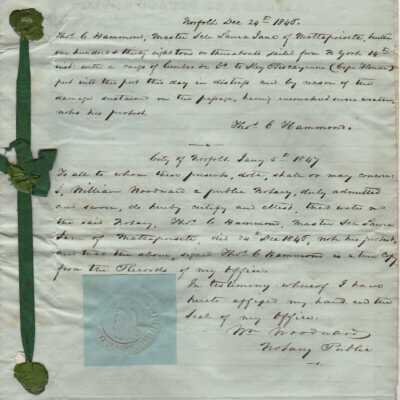 Norfolk Dec 24th 1846.
Thos. C Hammond, Master Schr Laura Jane of Mattapoisett, burthen
one hundred thirty eight tons or thereabouts sailed from N York 14th
inst. with a cargo of Lumber &c to Key Biscayune (Cape Florida)
put into this port this day in distress and by reason of the
damage sustained on the passage, having encountered severe weather
notes his protest.
Thos. C Hammond.
City of Norfolk Jany 5th 1847
To all to whom these presents, doth, shall or may concern:
I, William Woodward a public Notary, duly admitted
and sworn, do hereby certify and attest, that before me
the said Notary, Thos. C Hammond, Master Schr Laura
Jane of Mattapoisett, did 24th Dec 1846, note his protest,
and that the above, signed Thos. C Hammond is a true Copy
from the Records of my office.
In testimony whereof I have
hereto affixed my hand and the
Seal of my Office.
Wm Woodward
Notary Public